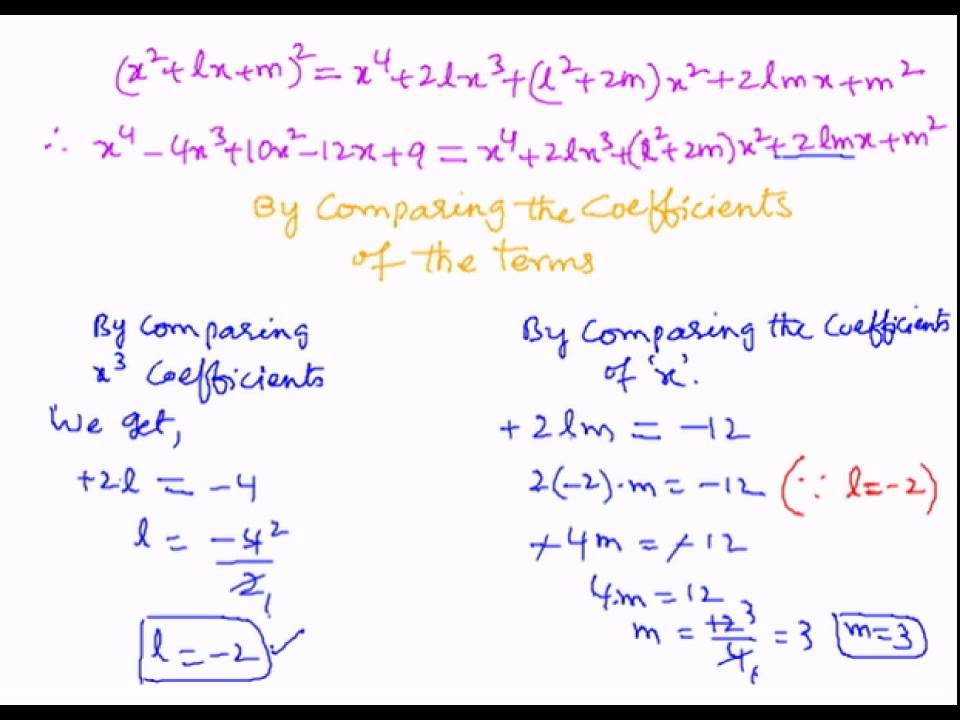 (x²+lx+m)² = x⁴+2lx³+(l²+2m)x²+2lmx+m²
∴ x⁴-4x³+10x²-12x+9 = x⁴+2lx³+(l²+2m)x²+2lmx+m²
By Comparing the Coefficients
of the terms
By Comparing
x³ Coefficients
We get,
+2l = -4
l = -4² / 2₁
l = -2 ✓
By Comparing the Coefficients
of 'x'.
+2lm = -12
2(-2)·m = -12 (∵ l=-2)
-4m = -12
4m = 12
m = 12³ / 4₁ = 3 m=3